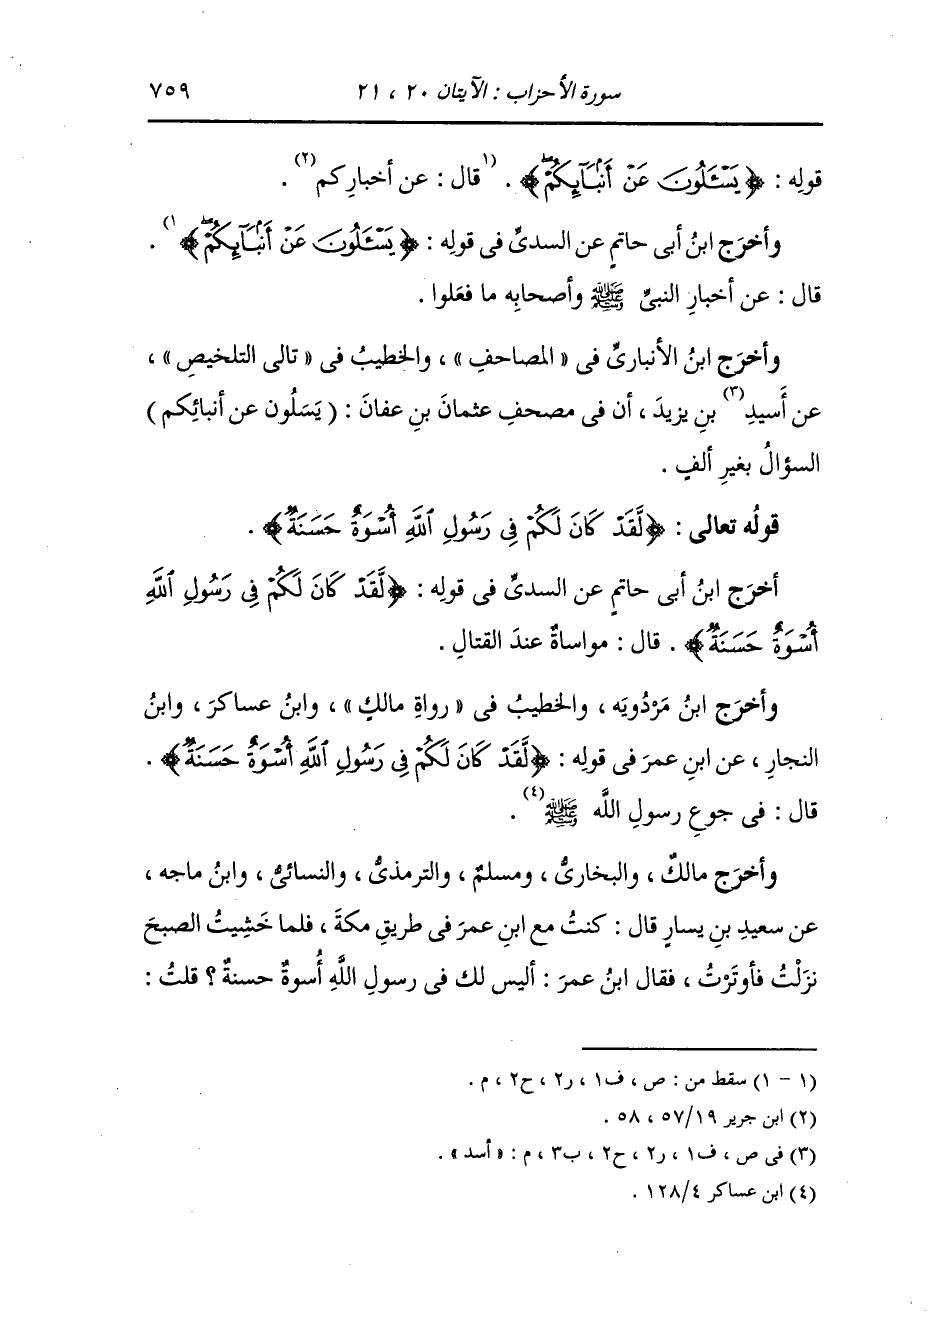 سورة الأحزاب : الآيتان ٢٠ ، ٢١ ٧٥٩
قولِه : ﴿يَسْـَٔلُونَ عَنْ أَنۢبَآئِكُمْۖ﴾ . (١قال : عن أخبارِكم(٢) .
وأخرَج ابنُ أبى حاتمٍ عن السدىِّ فى قولِه : ﴿يَسْـَٔلُونَ عَنْ أَنۢبَآئِكُمْۖ﴾١) .
قال : عن أخبارِ النبىِّ ﷺ وأصحابِه ما فعَلوا .
وأخرَج ابنُ الأنبارىِّ فى « المصاحفِ » ، والخطيبُ فى « تالى التلخيصِ » ،
عن أَسيدِ(٣) بنِ يزيدَ ، أن فى مصحفِ عثمانَ بنِ عفانَ : ( يَسَلُون عن أنبائِكم )
السؤالُ بغيرِ ألفٍ .
قولُه تعالى : ﴿لَّقَدْ كَانَ لَكُمْ فِى رَسُولِ ٱللَّهِ أُسْوَةٌ حَسَنَةٌ﴾ .
أخرَج ابنُ أبى حاتمٍ عن السدىِّ فى قولِه : ﴿لَّقَدْ كَانَ لَكُمْ فِى رَسُولِ ٱللَّهِ
أُسْوَةٌ حَسَنَةٌ﴾ . قال : مواساةٌ عندَ القتالِ .
وأخرَج ابنُ مَرْدُويَه ، والخطيبُ فى « رواةِ مالكٍ » ، وابنُ عساكرَ ، وابنُ
النجارِ ، عن ابنِ عمرَ فى قولِه : ﴿لَّقَدْ كَانَ لَكُمْ فِى رَسُولِ ٱللَّهِ أُسْوَةٌ حَسَنَةٌ﴾ .
قال : فى جوعِ رسولِ اللَّه ﷺ(٤) .
وأخرَج مالكٌ ، والبخارىُّ ، ومسلمٌ ، والترمذىُّ ، والنسائىُّ ، وابنُ ماجه ،
عن سعيدِ بنِ يسارٍ قال : كنتُ مع ابنِ عمرَ فى طريقِ مكةَ ، فلما خَشِيتُ الصبحَ
نزَلْتُ فأوتَرْتُ ، فقال ابنُ عمرَ : أليس لك فى رسولِ اللَّهِ أُسوةٌ حسنةٌ ؟ قلتُ :
(١ - ١) سقط من : ص ، ف١ ، ر٢ ، ح٢ ، م .
(٢) ابن جرير ١٩/ ٥٧ ، ٥٨ .
(٣) فى ص ، ف١ ، ر٢ ، ح٢ ، ب٣ ، م : « أسد » .
(٤) ابن عساكر ٤/ ١٢٨ .